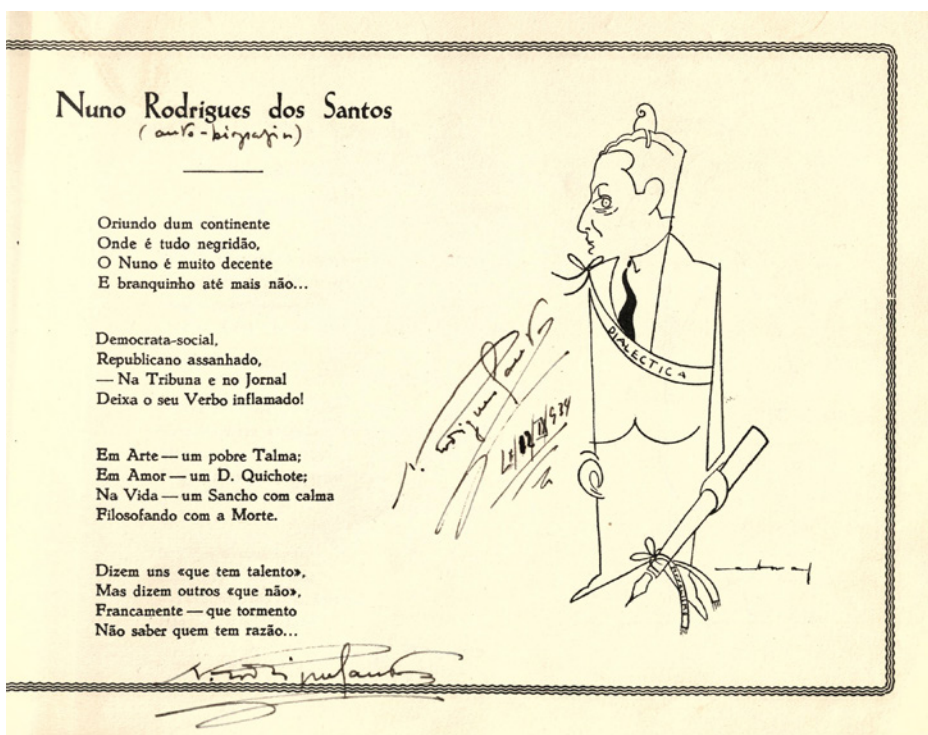 Nuno Rodrigues dos Santos
(auto-biografia)
Oriundo dum continente
Onde é tudo negridão,
O Nuno é muito decente
E branquinho até mais não...
Democrata-social,
Republicano assanhado,
— Na Tribuna e no Jornal
Deixa o seu Verbo inflamado!
Em Arte — um pobre Talma;
Em Amor — um D. Quichote;
Na Vida — um Sancho com calma
Filosofando com a Morte.
Dizem uns «que tem talento»,
Mas dizem outros «que não»,
Francamente — que tormento
Não saber quem tem razão...
DIALECTICA